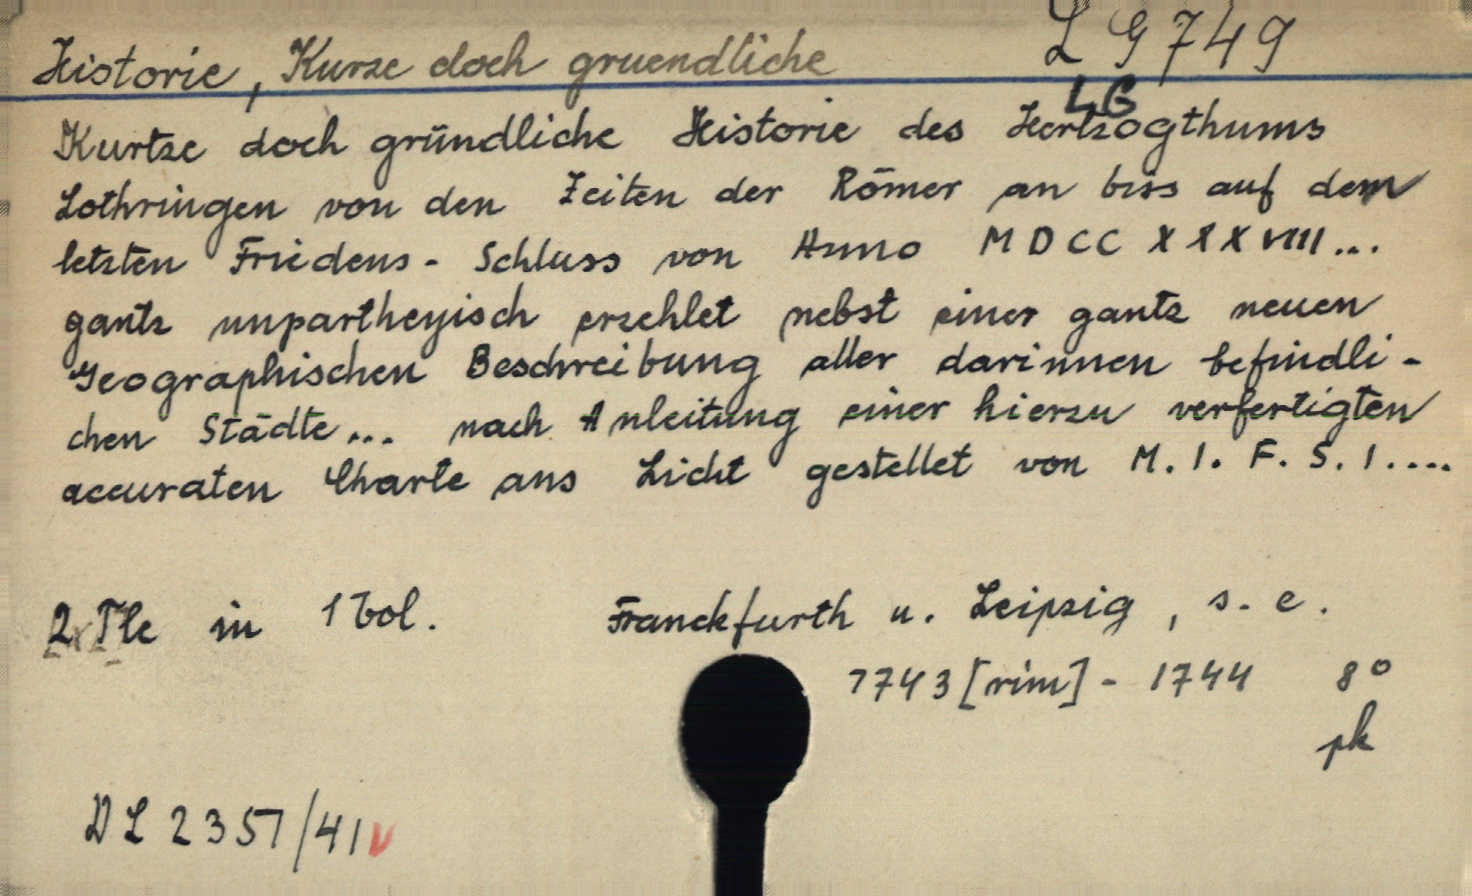 Historie, Kurze doch gruendliche LG749
LG
Kurtze doch gründliche Historie des Hertzogthums
Lothringen von den Zeiten der Römer an biss auf dem
letzten Friedens-Schluss von Anno MDCCXXXVIII...
gantz unpartheyisch erzehlet nebst einer gantz neuen
Geographischen Beschreibung aller darinnen befindli-
chen Städte... nach Anleitung einer hierzu verfertigten
accuraten Charte ans Licht gestellet von M.I.F.S.I....
2 Tle in 1 Vol. Franckfurth u. Leipzig, s. e.
1743 [rim] - 1744 8°
pk
DL 2357/41 v